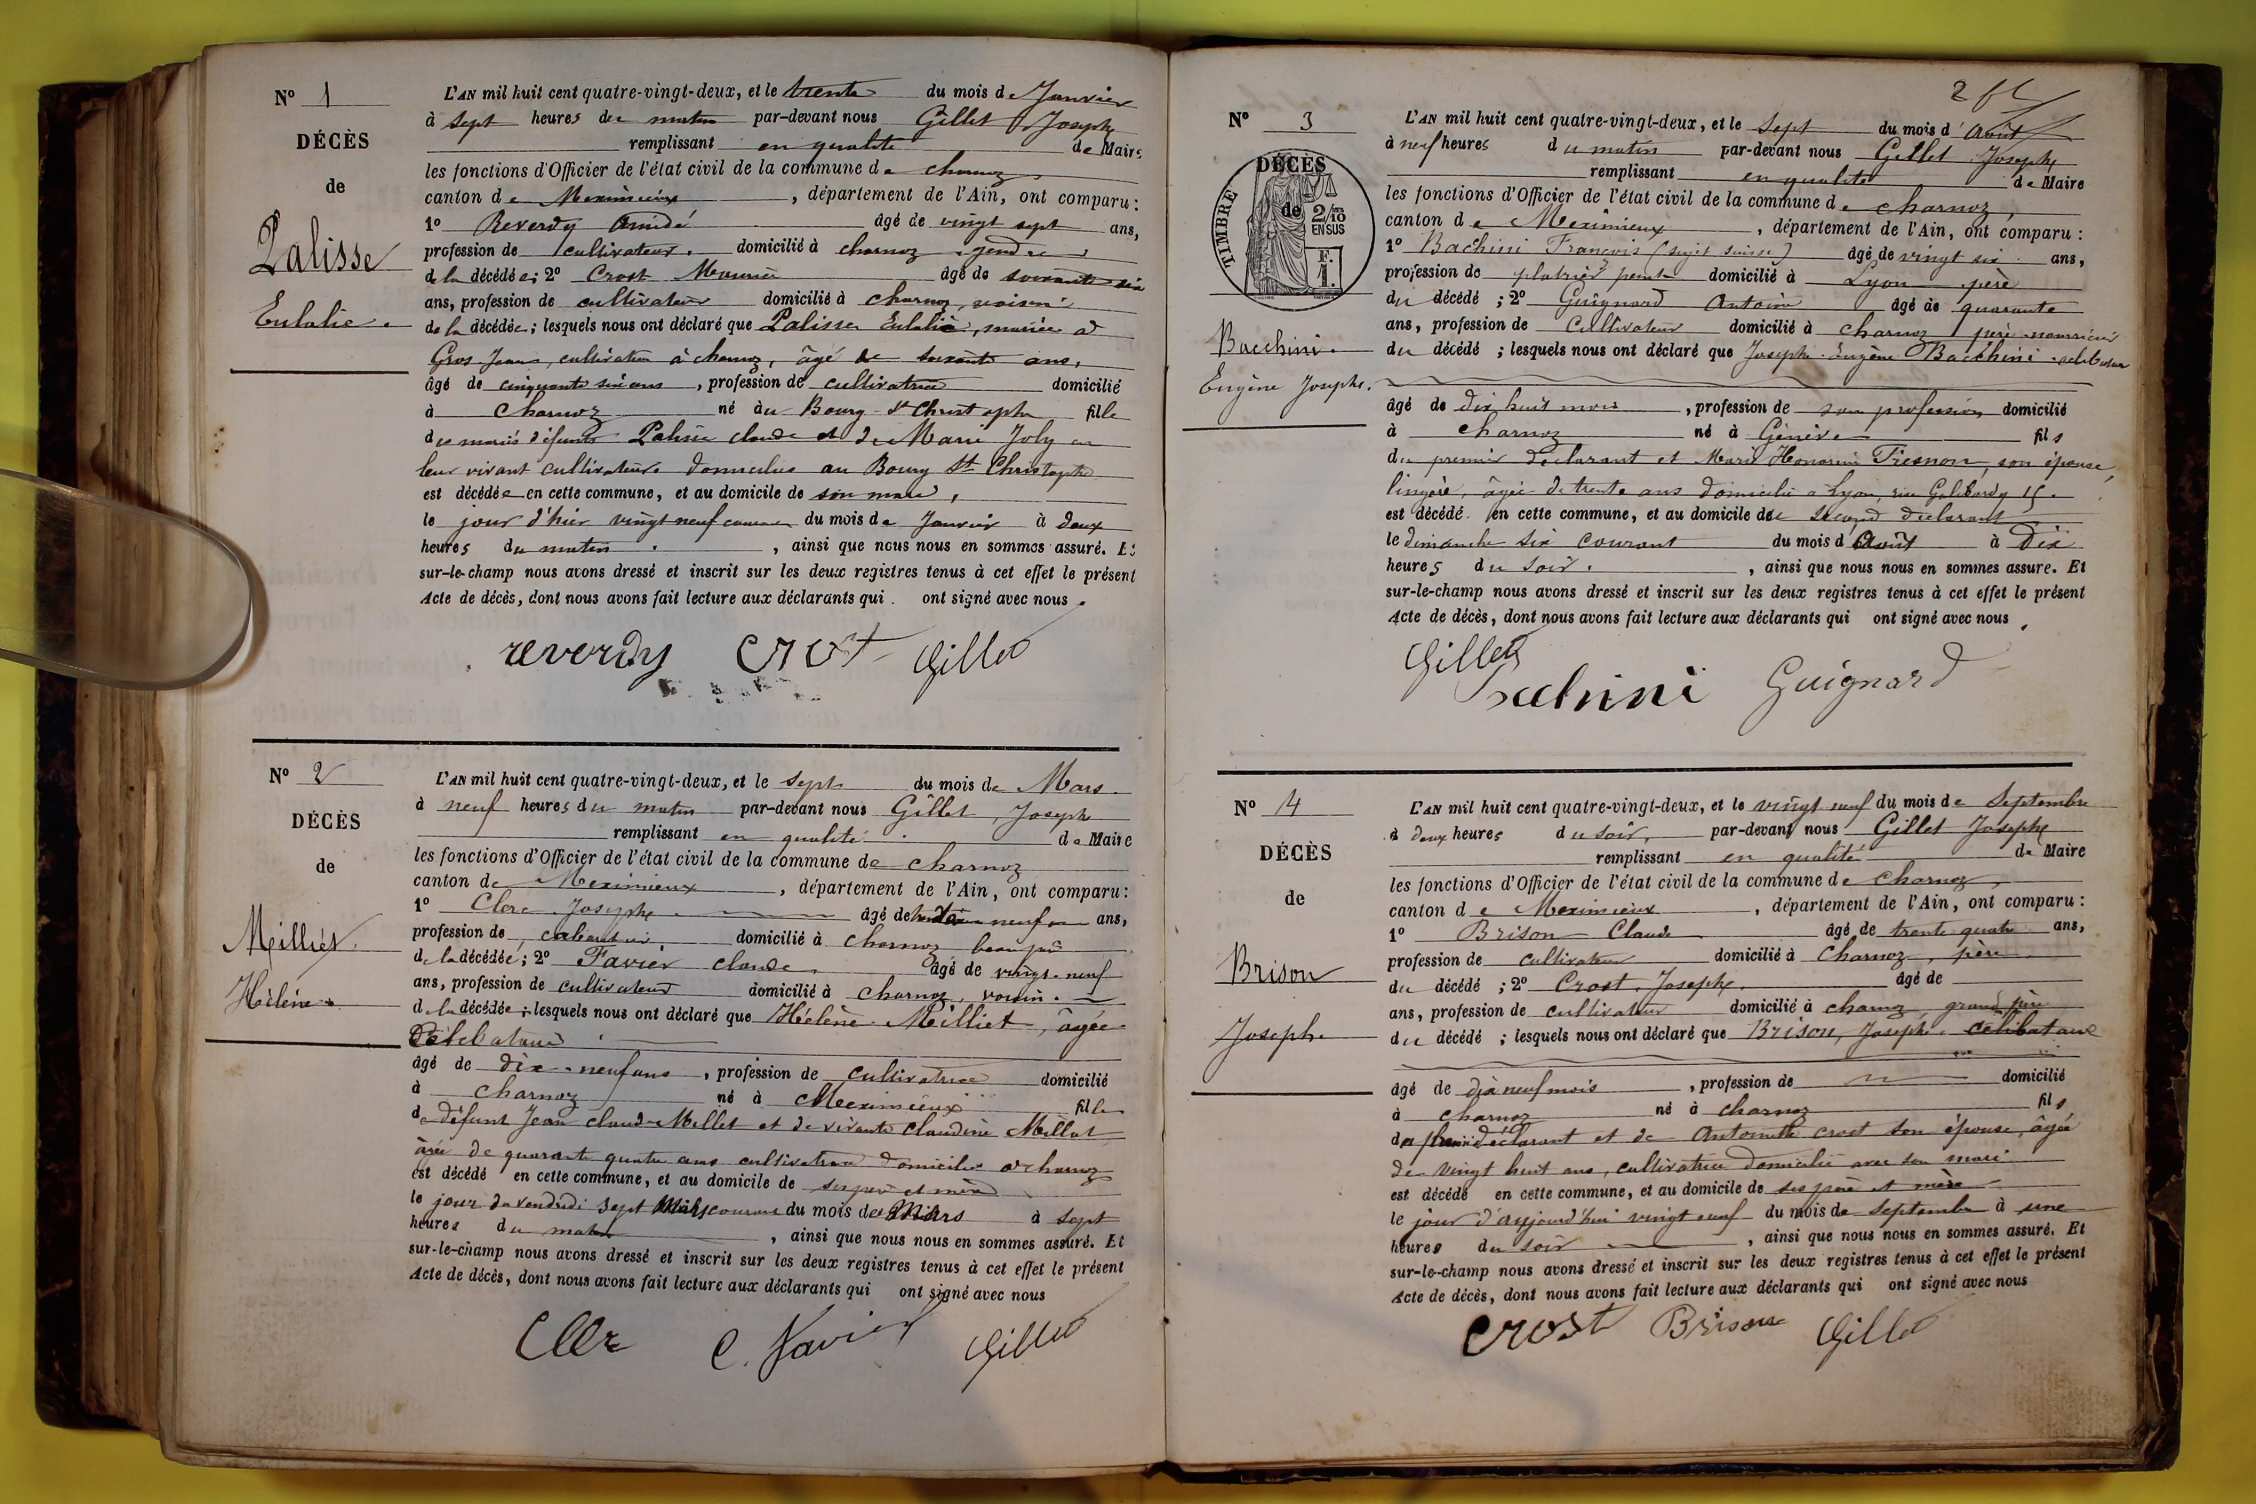 N° 1
DÉCÈS
de
Palisse
Eulalie.
L'AN mil huit cent quatre-vingt-deux, et le trente du mois de Janvier
à sept heures du matin par-devant nous Gillet Joseph
remplissant en qualité de Maire
les fonctions d'Officier de l'état civil de la commune de charnoz
canton de Meximieux, département de l'Ain, ont comparu :
1° Reverdy Amédé âgé de vingt sept ans,
profession de cultivateur. domicilié à charnoz gendre
de la décédée; 2° Crost Maurice âgé de soixante six
ans, profession de cultivateur domicilié à charnoz, voisin
de la décédée; lesquels nous ont déclaré que Palisse Eulalie, mariée à
Gros Jean, cultivateur à charnoz, âgé de soixante ans,
âgé de cinquante six ans, profession de cultivatrice domicilié
à Charnoz né au Bourg St Christophe fille
des mariés défunts Palisse claude et de Marie Joly en
leur vivant cultivateurs domiciliés au Bourg St Christophe
est décédée en cette commune, et au domicile de son mari,
le jour d'hier vingt neuf courant du mois de Janvier à deux
heures du matin, ainsi que nous nous en sommes assuré. Et
sur-le-champ nous avons dressé et inscrit sur les deux registres tenus à cet effet le présent
Acte de décès, dont nous avons fait lecture aux déclarants qui ont signé avec nous.
reverdy crost Gillet
N° 2
DÉCÈS
de
Milliet
Hélène
L'AN mil huit cent quatre-vingt-deux, et le sept du mois de Mars
à neuf heures du matin par-devant nous Gillet, Joseph
remplissant en qualité de Maire
les fonctions d'Officier de l'état civil de la commune de charnoz
canton de Meximieux, département de l'Ain, ont comparu :
1° Clerc Joseph âgé de neuf ans,
profession de cabaretier, domicilié à charnoz beau père
de la décédée; 2° Favier claude, âgé de vingt-neuf
ans, profession de cultivateur domicilié à charnoz, voisin.
de la décédée; lesquels nous ont déclaré que Hélène Milliet, âgée
Célibataire
âgé de dix-neuf ans, profession de cultivatrice domicilié
à charnoz né à Meximieux fille
de défunt Jean claude Millet et de vivante claudine Millat
âgée de quarante quatre ans cultivatrice domiciliée à charnoz
est décédé en cette commune, et au domicile de ses père et mère
le jour de vendredi sept courant du mois de Mars à sept
heures du matin, ainsi que nous nous en sommes assuré. Et
sur-le-champ nous avons dressé et inscrit sur les deux registres tenus à cet effet le présent
Acte de décès, dont nous avons fait lecture aux déclarants qui ont signé avec nous
Clerc C. Favier Gillet
N° 3
DÉCÈS
de
TIMBRE
2/10 EN SUS
F.
1.
Bacchini.
Eugène Joseph.
L'AN mil huit cent quatre-vingt-deux, et le sept du mois d'août
à neuf heures du matin par-devant nous Gillet Joseph
remplissant en qualité de Maire
les fonctions d'Officier de l'état civil de la commune de charnoz
canton de Meximieux, département de l'Ain, ont comparu :
1° Bachini François (sujet suisse) âgé de vingt six ans,
profession de platrier peint domicilié à Lyon père
du décédé; 2° Guignard Antoine âgé de quarante
ans, profession de Cultivateur domicilié à charnoz père nourricier
du décédé; lesquels nous ont déclaré que Joseph Eugène Bacchini célibataire
âgé de dix huit mois, profession de sans profession domicilié
à charnoz né à Genève fils
du premier déclarant et Marie Honorine Tiesnon, son épouse,
lingère, âgée de trente ans domiciliée à Lyon, rue Galibardy 15.
est décédé en cette commune, et au domicile du second déclarant
le dimanche six courant du mois d'Août à Dix
heures du soir., ainsi que nous nous en sommes assuré. Et
sur-le-champ nous avons dressé et inscrit sur les deux registres tenus à cet effet le présent
Acte de décès, dont nous avons fait lecture aux déclarants qui ont signé avec nous.
Gillet Bachini Guignard
N° 4
DÉCÈS
de
Brison
Joseph
L'AN mil huit cent quatre-vingt-deux, et le vingt neuf du mois de Septembre
à deux heures du soir, par-devant nous Gillet Joseph
remplissant en qualité de Maire
les fonctions d'Officier de l'état civil de la commune de charnoz,
canton de Meximieux, département de l'Ain, ont comparu :
1° Brison Claude âgé de trente quatre ans,
profession de cultivateur domicilié à Charnoz, père
du décédé; 2° Crost Joseph. âgé de
ans, profession de cultivateur domicilié à charnoz grand père
du décédé; lesquels nous ont déclaré que Brison, Joseph célibataire
âgé de dix neuf mois, profession de domicilié
à charnoz né à charnoz fils
du premier déclarant et de Antoinette crost son épouse, âgée
de vingt huit ans, cultivatrice domiciliée avec son mari
est décédé en cette commune, et au domicile de ses père et mère
le jour d'aujourd'hui vingt neuf du mois de septembre à une
heures du soir, ainsi que nous nous en sommes assuré. Et
sur-le-champ nous avons dressé et inscrit sur les deux registres tenus à cet effet le présent
Acte de décès, dont nous avons fait lecture aux déclarants qui ont signé avec nous
crost Brison Gillet